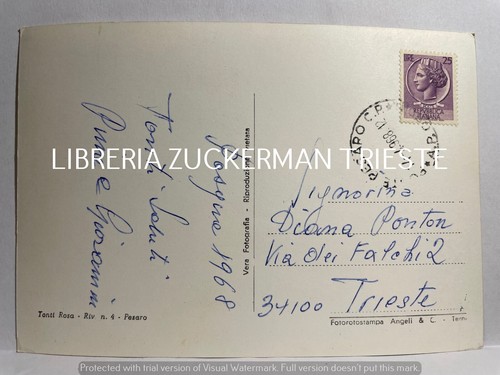 Pasqua 1968
Tanti Saluti
Pina e Giovanni
Tonti Rosa - Riv n. 4 - Pesaro
Vera Fotografia - Riproduzione vietata
25
PESARO C.P.
Signorina
Diana Ponton
Via dei Falchi 2
34100 Trieste
Fotorotostampa Angeli & C. - Terni
LIBRERIA ZUCKERMAN TRIESTE
Protected with trial version of Visual Watermark. Full version doesn't put this mark.